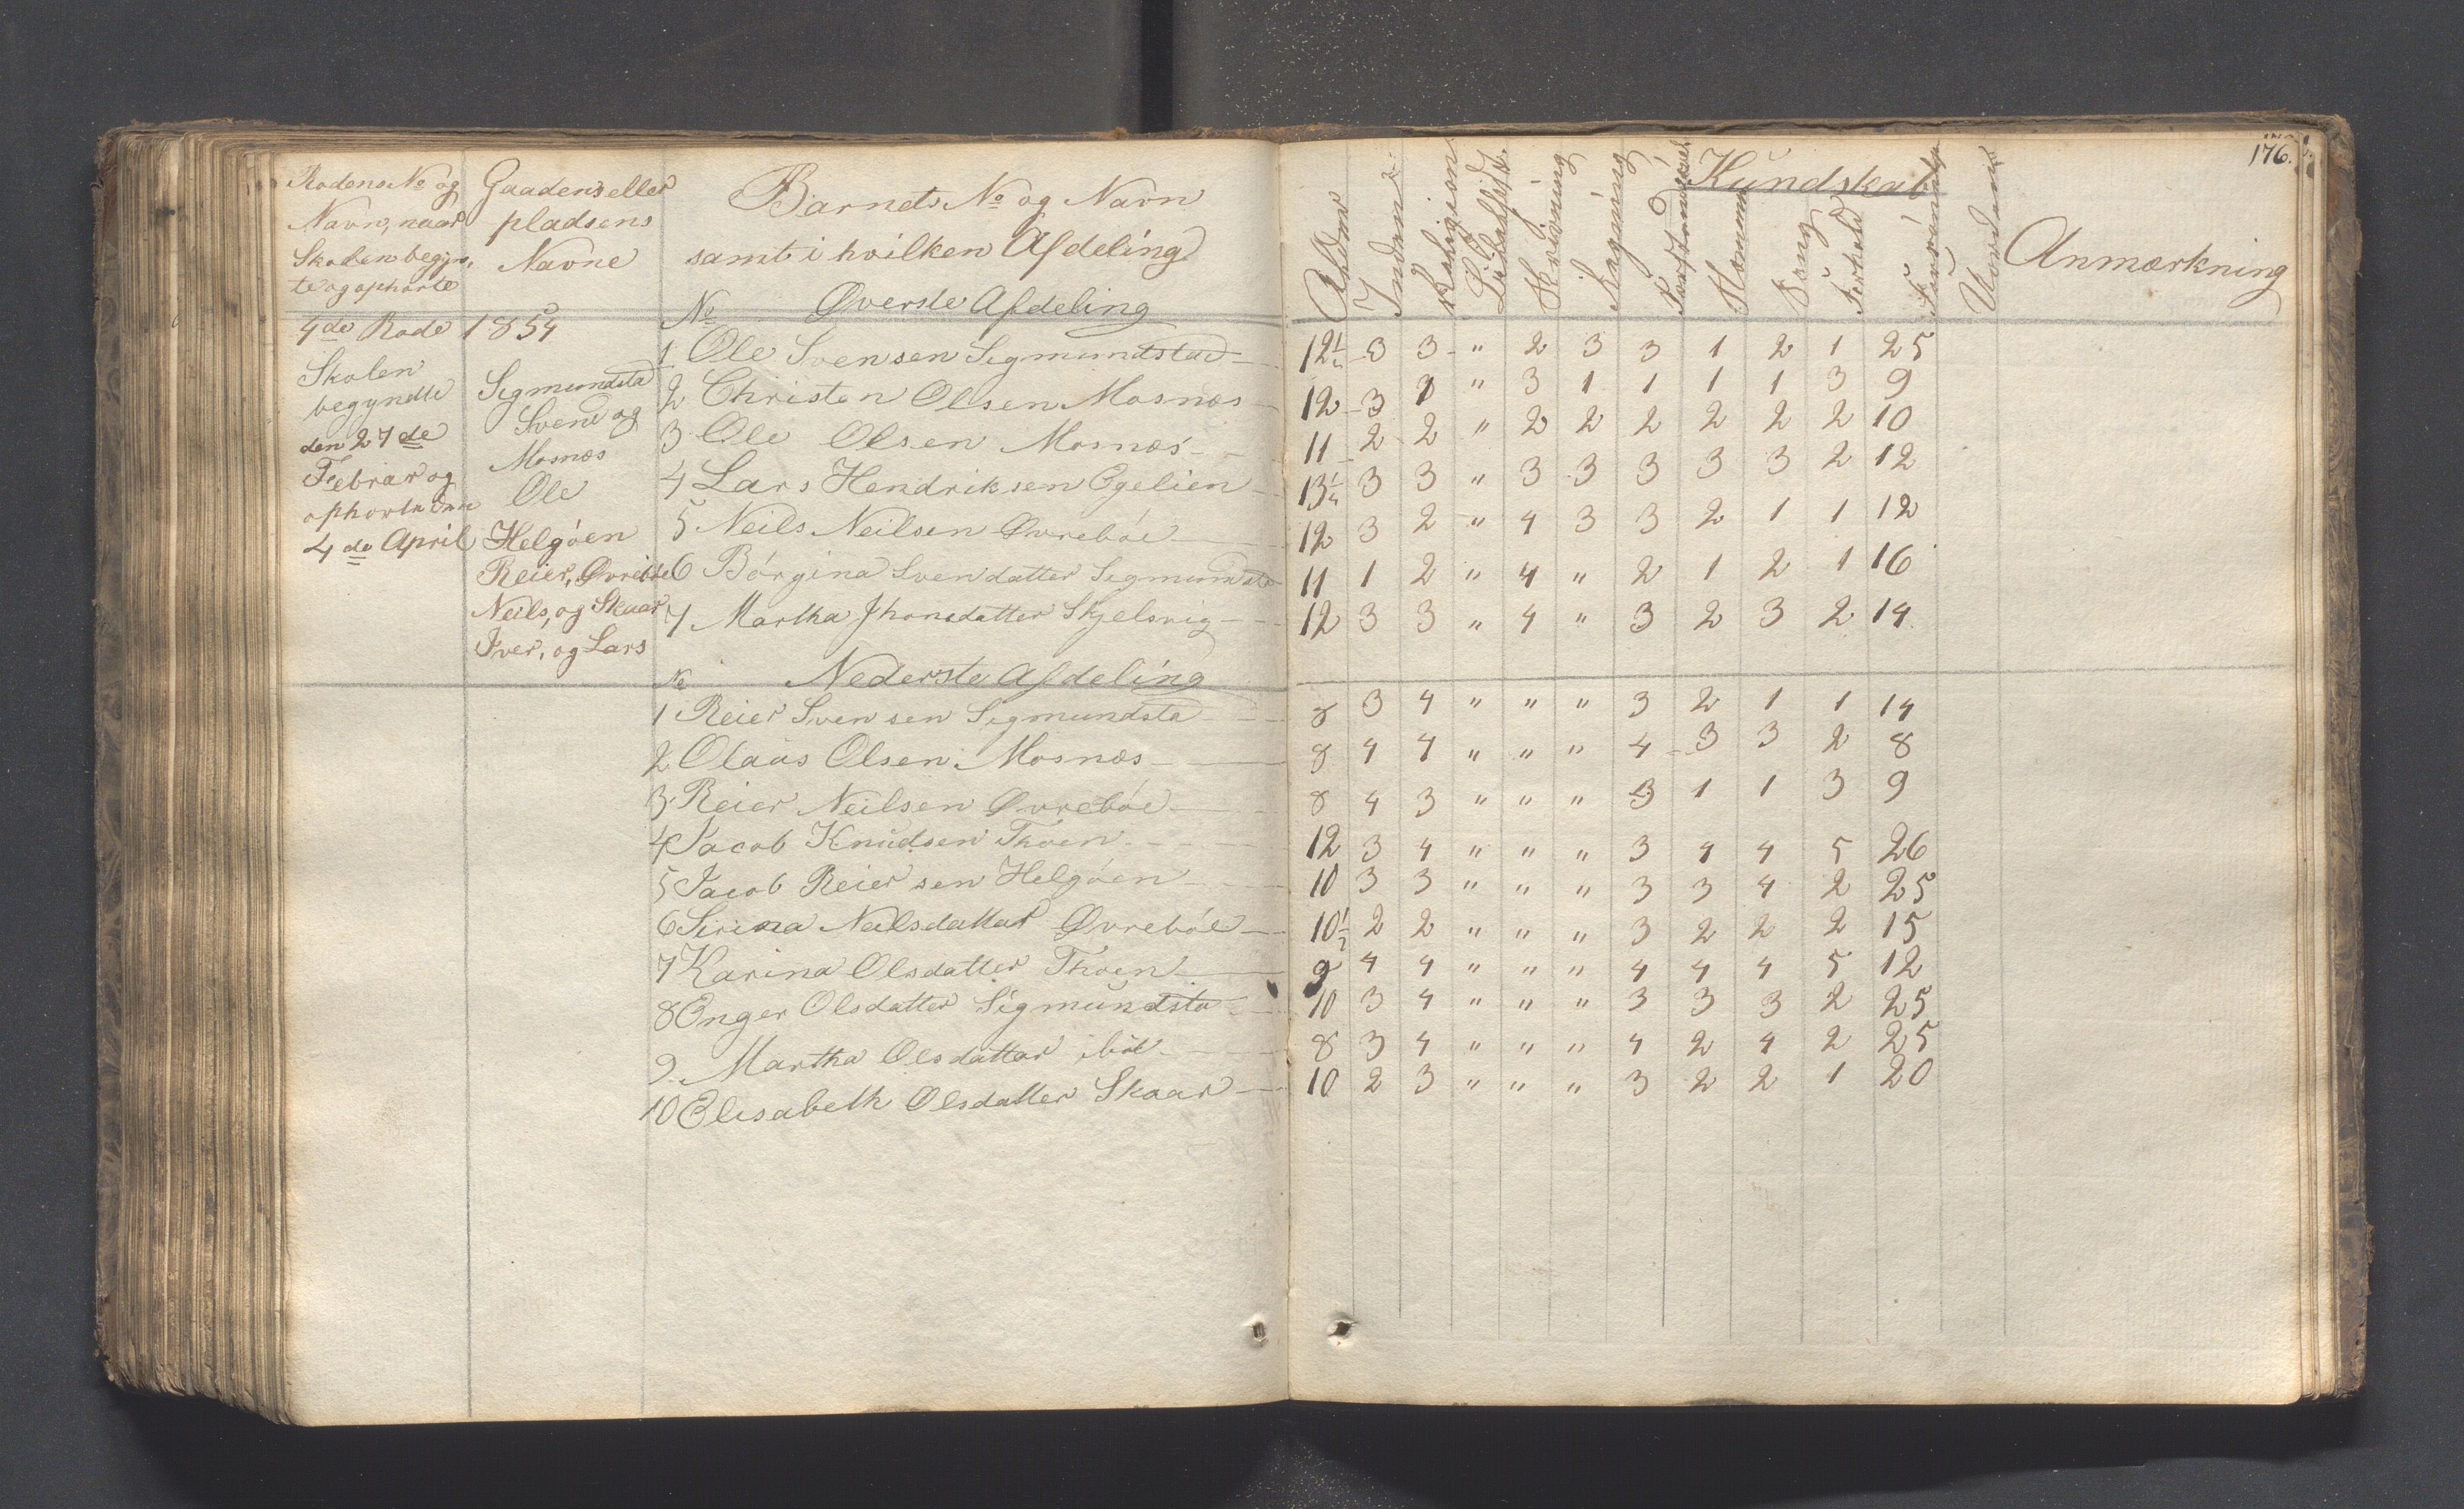 Rodens No og
Navn, naar
Skolen begyn,
te og ophørte
Gaadens eller
pladsens
Navne
Barnets No og Navn
samt i hvilken Afdeling
4de Rode 1854
Skolen
begyndte
den 27de
Febrar og
ophørte den
4de April
Sigmundsta
Svend og
Mosnæs
Ole
Helgøen
Reier, Øvrebøe
Neils, og Skaar
Iver, og Lars
No Øverste Afdeling
1 Ole Svensen Sigmundstad
2 Christen Olsen Mosnæs
3 Ole Olsen Mosnæs
4 Lars Hendriksen Egelien
5 Neils Neilsen Øvrebøe
6 Børgina Svendatter Sigmundsta
7 Martha Jhonsdatter Skjelsvig
No Nederste Afdeling
1 Reier Svensen Sigmundsta
2 Olaus Olsen Mosnæs
3 Reier Neilsen Øvrebøe
4 Jacob Knudsen Thoen
5 Jacob Reiersen Helgøen
6 Sirina Neilsdatter Øvrebøe
7 Karina Olsdatter Thoen
8 Enger Olsdatter Sigmundsta
9 Martha Olsdatter ibid
10 Elisabeth Olsdatter Skaar
176.
Kundskab
Alder
Indenad
Religion
Skrivning
Regning
Sang
Forhold
Anmærkning
12½ 3 3 " 2 3 3 1 2 1 25
12 3 1 " 3 1 1 1 1 3 9
11 2 2 " 2 2 2 2 2 2 10
13¼ 3 3 " 3 3 3 3 3 2 12
12 3 2 " 4 3 3 2 1 1 12
11 1 2 " 4 " 2 1 2 1 16
12 3 3 " 4 " 3 2 3 2 14
8 3 4 " " " 3 2 1 1 14
8 4 4 " " " 4 3 3 2 8
8 4 3 " " " 3 1 1 3 9
12 3 4 " " " 3 4 4 5 26
10 3 3 " " " 3 3 4 2 25
10½ 2 2 " " " 3 2 2 2 15
9 4 4 " " " 4 4 4 5 12
10 3 4 " " " 3 3 3 2 25
8 3 4 " " " 4 2 4 2 25
10 2 3 " " " 3 2 2 1 20